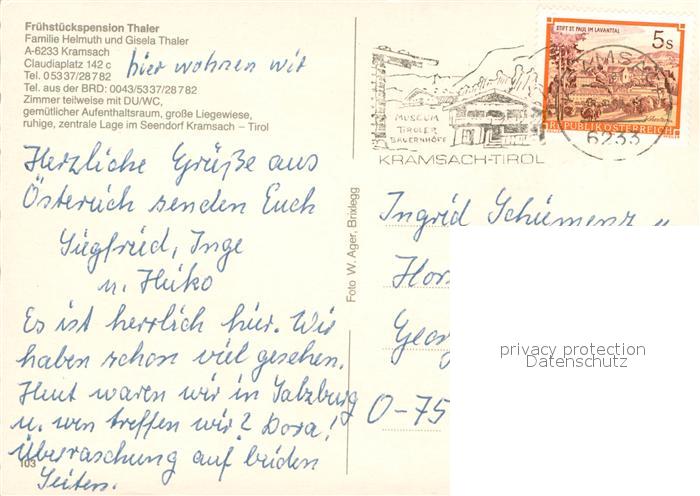 Frühstückspension Thaler
Familie Helmuth und Gisela Thaler
A-6233 Kramsach
Claudiaplatz 142 c
Tel. 05337/28782
hier wohnen wir
Tel. aus der BRD: 0043/5337/28782
Zimmer teilweise mit DU/WC,
gemütlicher Aufenthaltsraum, große Liegewiese,
ruhige, zentrale Lage im Seendorf Kramsach – Tirol
Herzliche Grüße aus
Österreich senden Euch
Siegfried, Inge
u. Heiko
Es ist herrlich hier. Wir
haben schon viel gesehen.
Heut waren wir in Salzburg
u. wen treffen wir? Dora!
Überraschung auf beiden
Seiten.
103
Foto W. Ager, Brixlegg
MUSEUM
TIROLER
BAUERNHÖFE
KRAMSACH-TIROL
STIFT ST. PAUL IM LAVANTTAL
5s
REPUBLIK ÖSTERREICH
6233
Ingrid Schiemenz u
Hors
Georg
O-75
privacy protection
Datenschutz